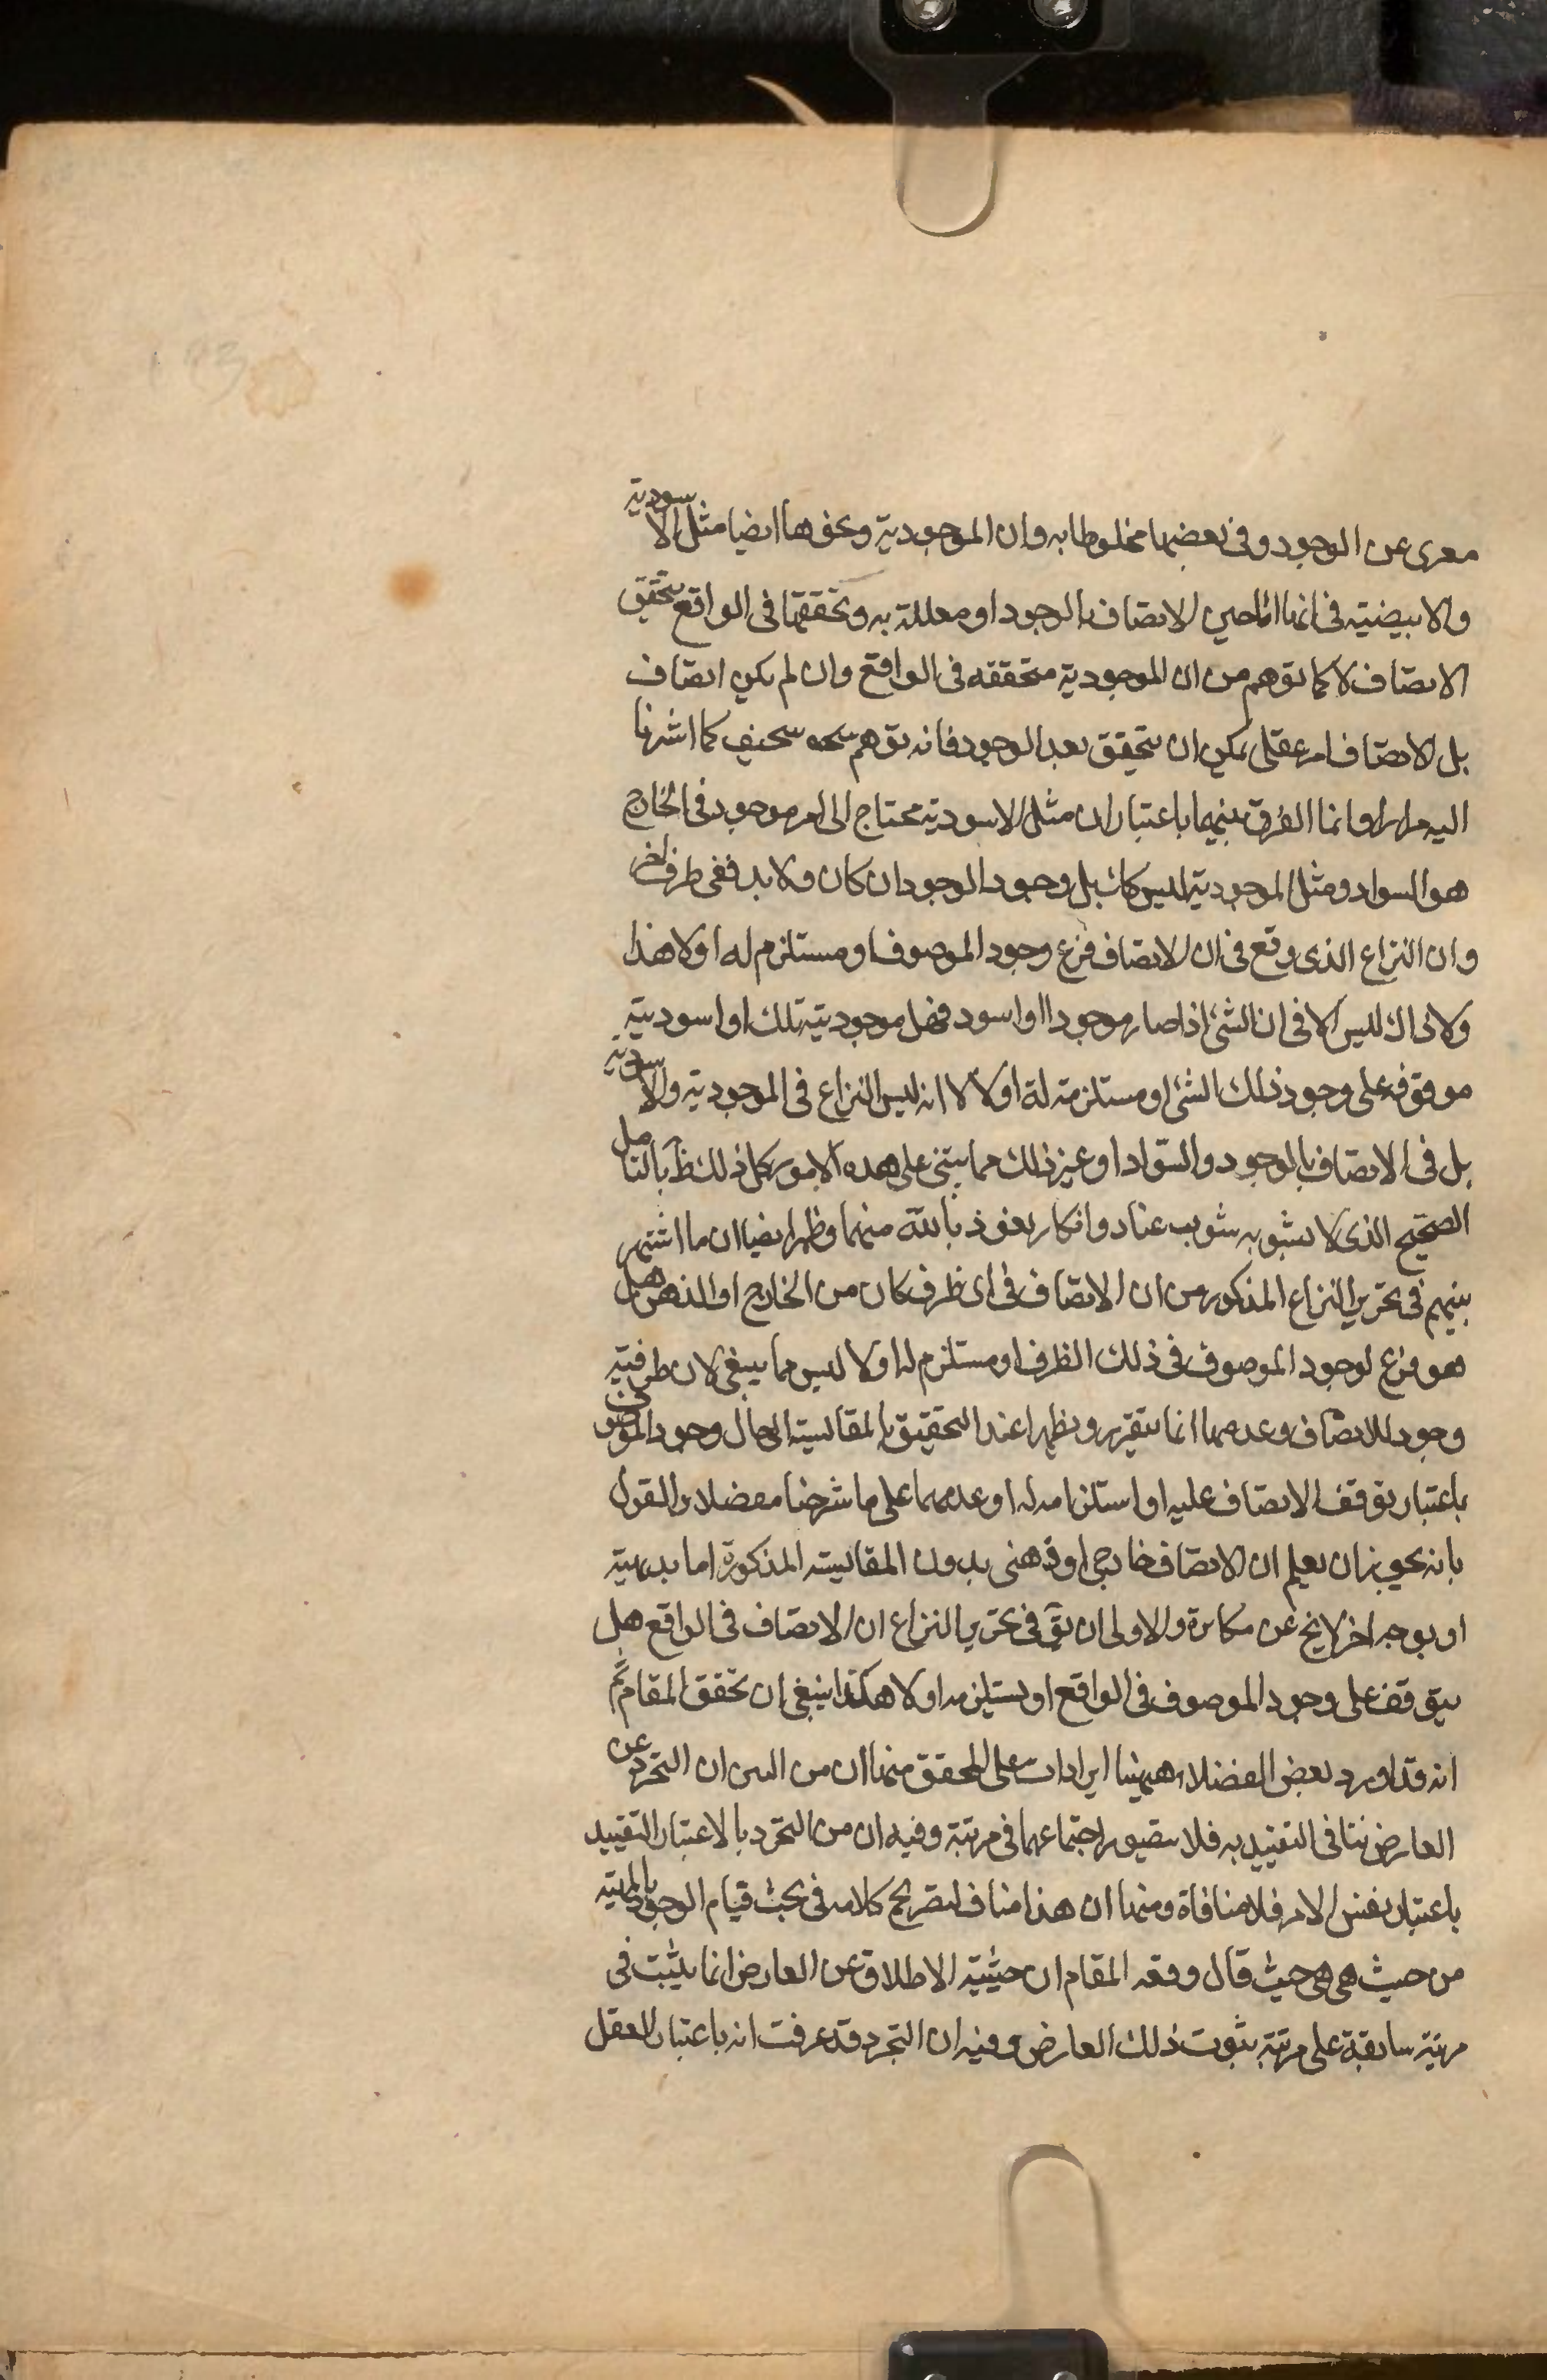 معرى عن الوجود وفى بعضها مخلوطا به وان الموجودية ونحوها ايضا مثل الاسودية
والابيضية فى انها اما حين الاتصاف بالوجود او معللة به وتحققها فى الواقع بتحقق
الاتصاف لا كما توهم من ان الموجودية متحققه فى الواقع وان لم يكن اتصاف
بل الاتصاف امر عقلى يمكن ان يتحقق بعد الوجود فانه توهم سخيف كما اشرنا
اليه مرارا وانما الفرق بينهما باعتبار ان مثل الاسودية محتاج الى امر موجود فى الخارج
هو السواد ومثل الموجودية ليس كك بل وجود الوجود ان كان ولا بد ففى ظرف اخر
وان النزاع الذى وقع فى ان الاتصاف فرع وجود الموصوف او مستلزم له اولا هذا
ولا ذاك ليس الا فى ان الشئ اذا صار موجودا او اسود فهل موجودية تلك او اسوديته
موقوفه على وجود ذلك الشئ او مستلزمة له اولا لا انه ليس النزاع فى الموجودية والاسودية
بل فى الاتصاف بالوجود والسواد او غير ذلك مما يبتنى على هده الامور كل ذلك ظ بالتامل
الصحيح الذى لا يشوبه شوب عناد وانكار نعوذ بالله منهما وظهر ايضا ان ما اشتهر
بينهم فى تحرير النزاع المذكور من ان الاتصاف فى اى ظرف كان من الخارج او الذهن هل
هو فرع لوجود الموصوف فى ذلك الظرف او مستلزم له اولا ليس مما ينبغى لان ظرفية
وجود للاتصاف وعدمها انما يتقرر ويظهر عند التحقيق بالمقايسة الى حال وجود الموصوف
باعتبار توقف الاتصاف عليه او استلزامه له او عدمهما على ما شرحنا مفصلا والقول
بانه يجوز ان يعلم ان الاتصاف خارجى او ذهنى بدون المقايسة المذكورة اما بديهية
او بوجه اخر لا يخ عن مكابرة والاولى ان يق فى تحرير النزاع ان الاتصاف فى الواقع هل
يتوقف على وجود الموصوف فى الواقع او يستلزمه اولا هكذا ينبغى ان تحقق المقام ثم
انه قد اورد بعض الفضلاء ههينا ايرادات على المحقق منها ان من البين ان التجرد عن
العارض ينافى التقييد به فلا يتصور اجتماعهما فى مرتبة وفيه ان من التجرد بالاعتبار التقييد
باعتبار نفس الامر فلا منافاة ومنها ان هذا مناف لتصريح كلامه فى بحث قيام الوجود بالمهية
من حيث هى هى حيث قال وفقه المقام ان حيثية الاطلاق عن العارض انما يثبت فى
مرتبة سابقة على مرتبة ثبوت ذلك العارض وفيه ان التجرد قد عرفت انه باعتبار العقل